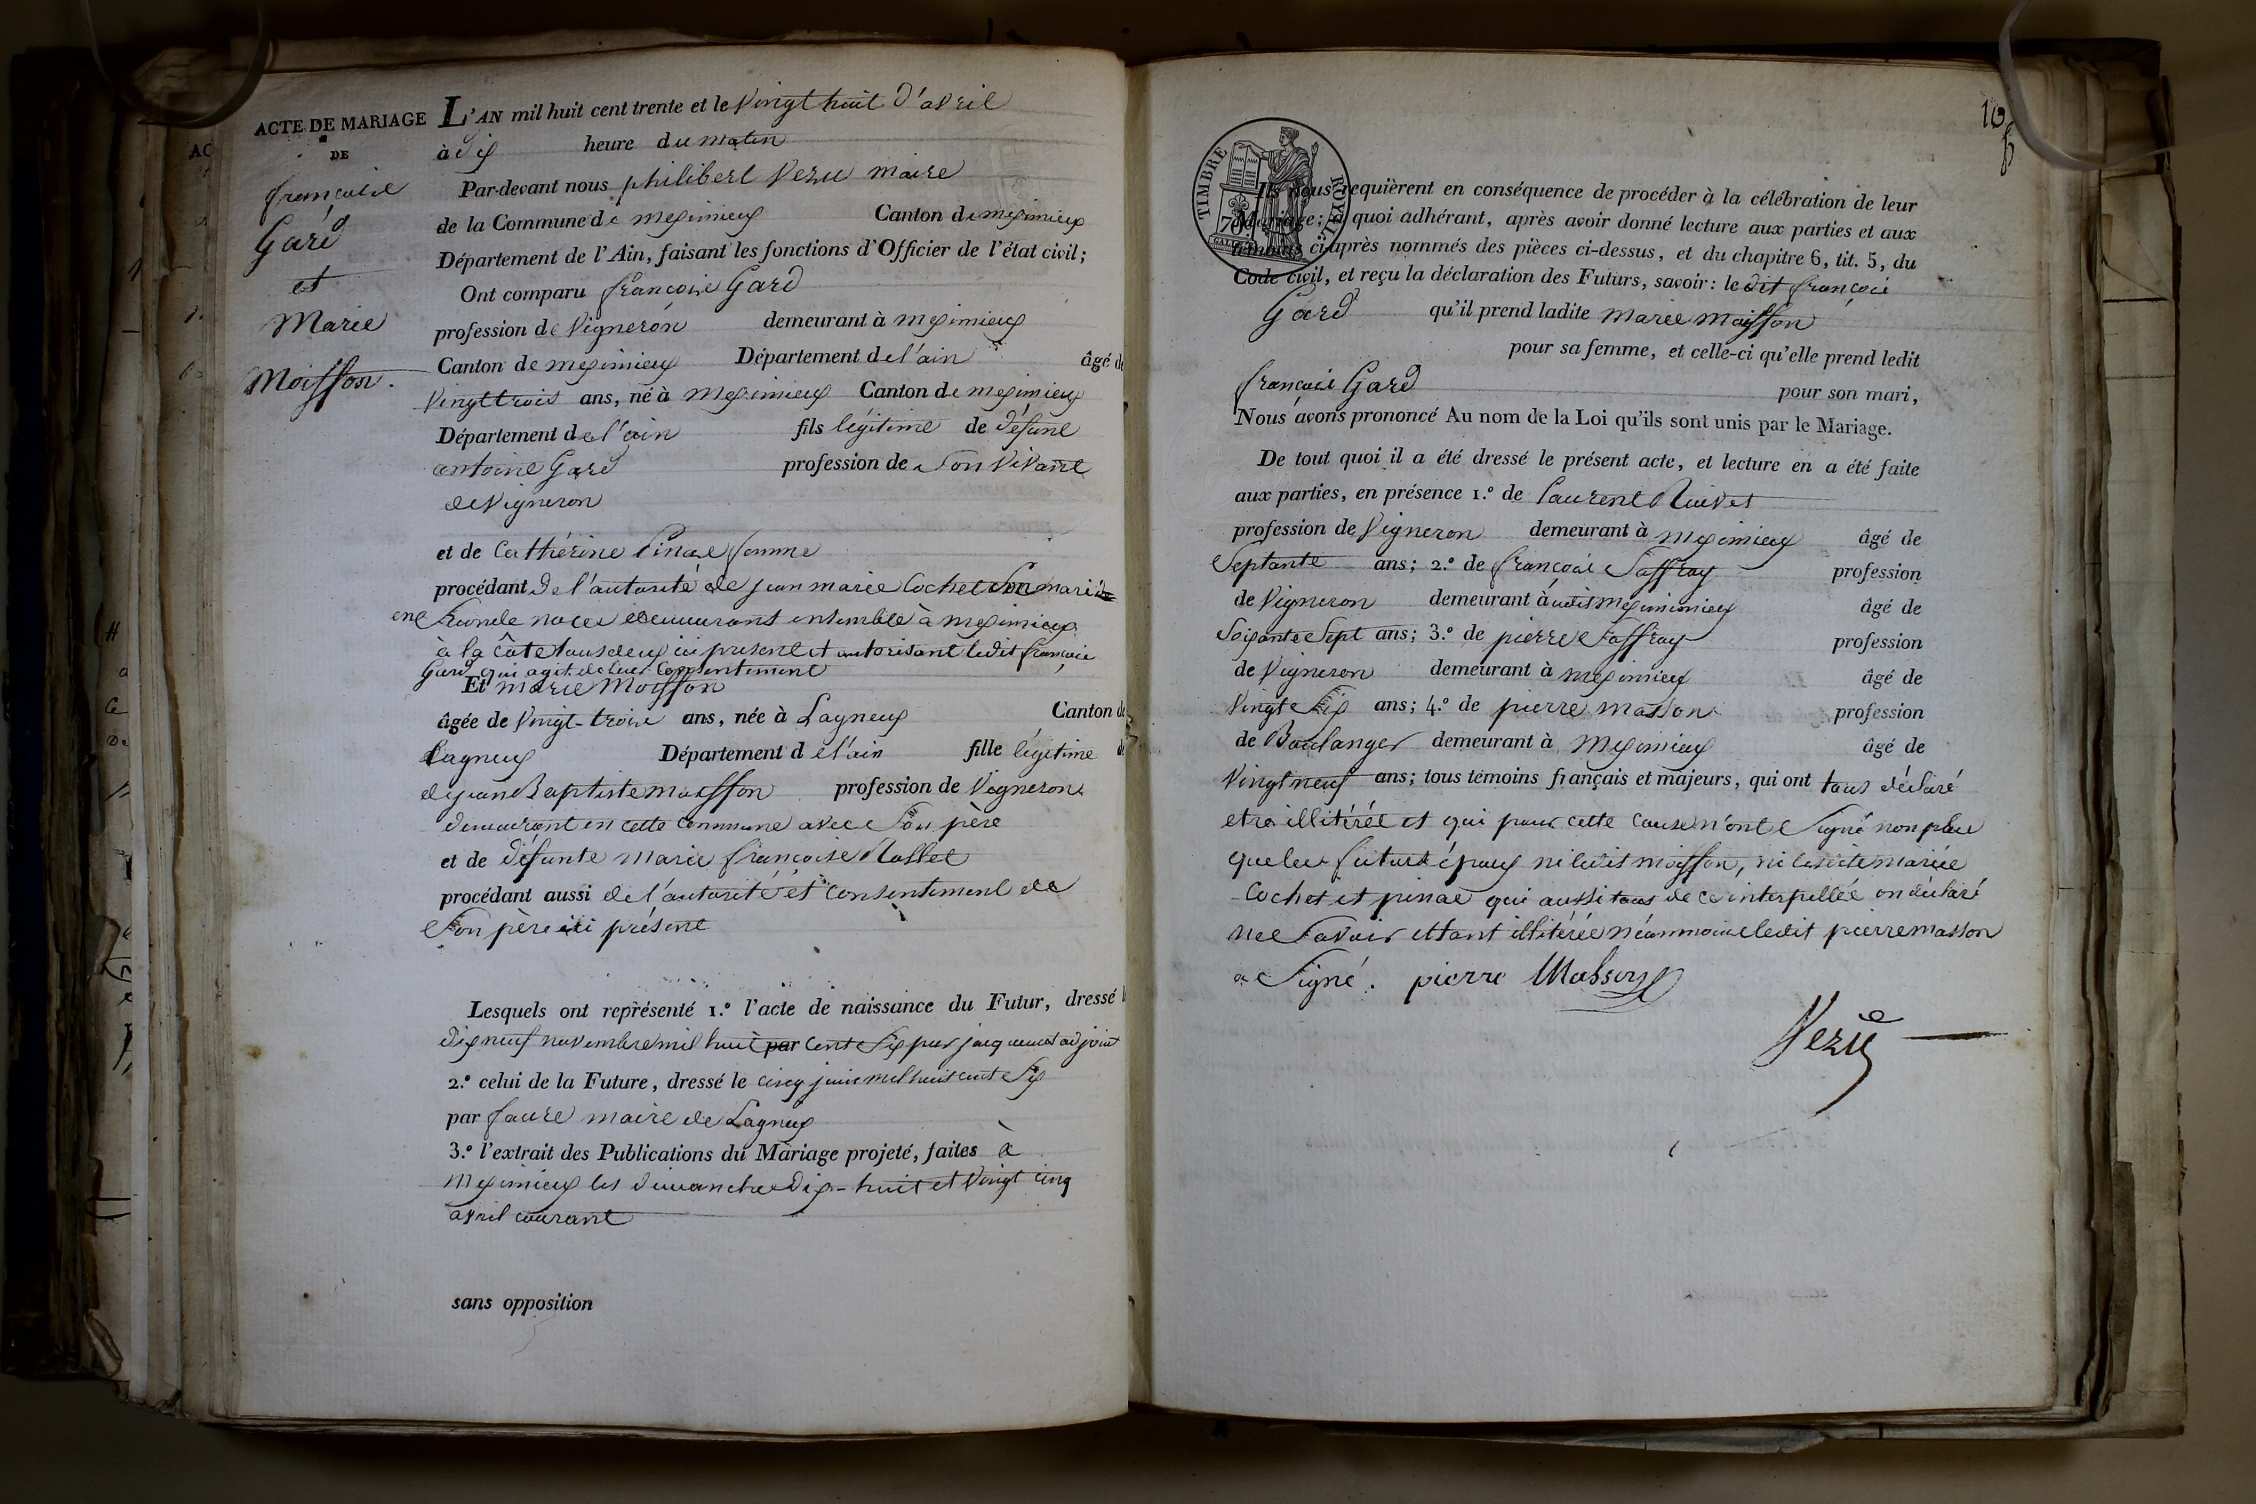 ACTE DE MARIAGE
DE
françois
Gard
et
Marie
Moisson.
L'AN mil huit cent trente et le vingt huit d'avril
à dix heure du matin
Par-devant nous philibert Vezu maire
de la Commune de meximieux Canton de meximieux
Département de l'Ain, faisant les fonctions d'Officier de l'état civil;
Ont comparu françois Gard
profession de vigneron demeurant à meximieux
Canton de meximieux Département de l'ain âgé de
vingt trois ans, né à meximieux Canton de meximieux
Département de l'ain fils légitime de défunt
antoine Gard profession de son vivant
de vigneron
et de Cathérine Pinae femme
procédant de l'autorité de jean marie Cochet son mari
en seconde noces demeurant ensemble à meximieux
à la côte tous deux ici présent et autorisant ledit françois
Gard qui agit de leur Consentement
Et marie Moisson
âgée de vingt-trois ans, née à Lagneux Canton de
Lagneux Département de l'ain fille légitime de
de jean Baptiste moisson profession de vigneron
demeurant en cette commune avec son père
et de défunte marie françoise
procédant aussi de l'autorité et consentement de
son père ici présent
Lesquels ont représenté 1.º l'acte de naissance du Futur, dressé le
dix neuf novembre mil huit par cent six par jacquemet adjoint
2.º celui de la Future, dressé le cinq juin mil huit cent six
par faure maire de Lagneux
3.º l'extrait des Publications du Mariage projeté, faites à
meximieux les dimanches dix-huit et vingt cinq
avril courant
sans opposition
10
TIMBRE ROYAL
Ils nous requièrent en conséquence de procéder à la célébration de leur
Mariage; à quoi adhérant, après avoir donné lecture aux parties et aux
témoins ci-après nommés des pièces ci-dessus, et du chapitre 6, tit. 5, du
Code civil, et reçu la déclaration des Futurs, savoir: le dit françois
Gard qu'il prend ladite marie moisson
pour sa femme, et celle-ci qu'elle prend ledit
françois Gard pour son mari,
Nous avons prononcé Au nom de la Loi qu'ils sont unis par le Mariage.
De tout quoi il a été dressé le présent acte, et lecture en a été faite
aux parties, en présence 1.º de laurent Ruivet
profession de vigneron demeurant à meximieux âgé de
septante ans; 2.º de françois saffray profession
de vigneron demeurant à meximieux âgé de
soixante sept ans; 3.º de pierre saffray profession
de vigneron demeurant à meximieux âgé de
vingt six ans; 4.º de pierre masson profession
de Boulanger demeurant à meximieux âgé de
vingt neuf ans; tous témoins français et majeurs, qui ont tous déclaré
etre illitérés et qui pour cette cause n'ont signé non plus
que les futurs époux ni ledit moisson, ni lesdits mariés
Cochet et pinae qui aussi tous de ce interpellés on déclaré
ne savoir ettant illitérés néanmoins ledit pierre masson
a signé. pierre Masson
Vezu